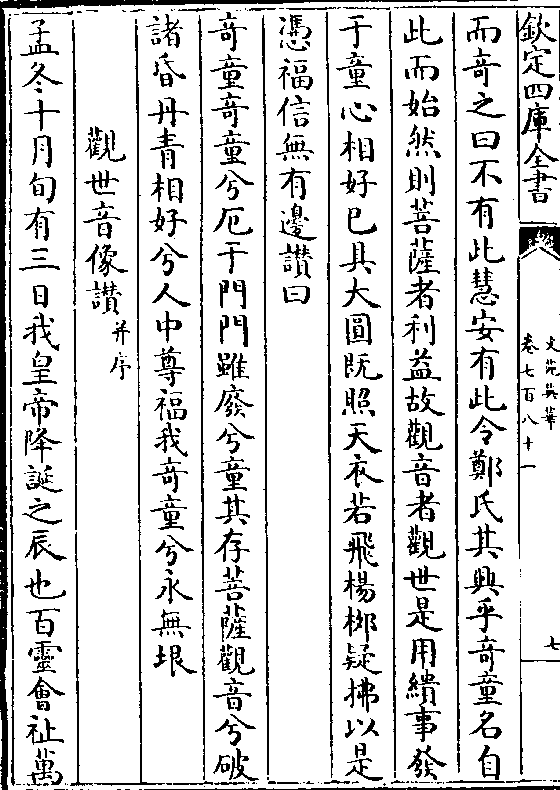 欽定四庫全書
文苑英華
卷七百八十一
七
而奇之曰不有此慧安有此令鄭氏其興乎奇童名自
此而始然則菩薩者利益故觀音者觀世是用繢事發
于童心相好已具大圓旣照天衣若飛楊栁疑拂以是
憑福信無有邊讃曰
奇童奇童兮厄于門門雖廢兮童其存菩薩觀音兮破
諸昏丹青相好兮人中尊福我奇童兮永無垠
觀世音像讃并序
孟冬十月旬有三日我皇帝降誕之辰也百靈會祉萬